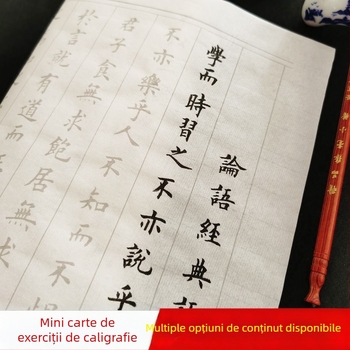 論語經典
學而時習之不亦說乎
不亦樂乎人不知而不
君子食無求飽居無求
於言就有道而
Mini carte de
exerciții de caligrafie
Multiple opțiuni de conținut disponibile